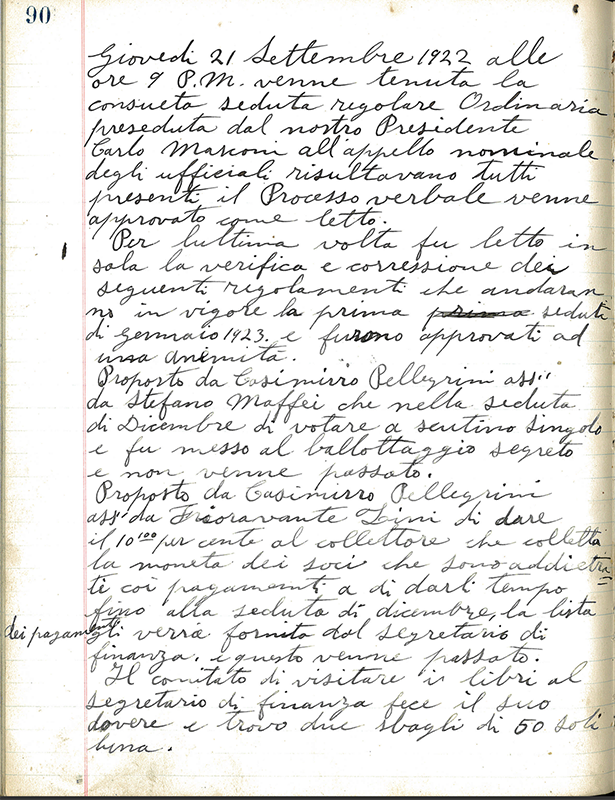 90
Giovedi 21 Settembre 1922 alle
ore 9 P.M. venne tenuta la
consueta seduta regolare Ordinaria
preseduta dal nostro Presidente
Carlo Marconi all'appello nominale
degli ufficiali risultavano tutti
presenti il Processo verbale venne
approvato come letto.
Per lultima volta fu letto in
sala la verifica e corressione dei
seguenti regolamenti che andaran
no in vigore la prima prima seduta
di Gennaio 1923. e furono approvati ad
una anemita.
Proposto da Casimirro Pellegrini assi
da Stefano Maffei che nella seduta
di Dicembre di votare a scutino singolo
e fu messo al ballottaggio segreto
e non venne passato.
Proposto da Casimirro Pellegrini
assi da Fioravante Lini di dare
il 10 per cento al collettore che colletta
la moneta dei soci che sono addietra
ti coi pagamenti a di darli tempo
fino alla seduta di dicembre, la lista
dei pagamenti verra fornita dal segretario di
finanza. e questo venne passato.
Il comitato di visitare i libri al
segretario di finanza fece il suo
dovere e trovo due sbagli di 50 soli